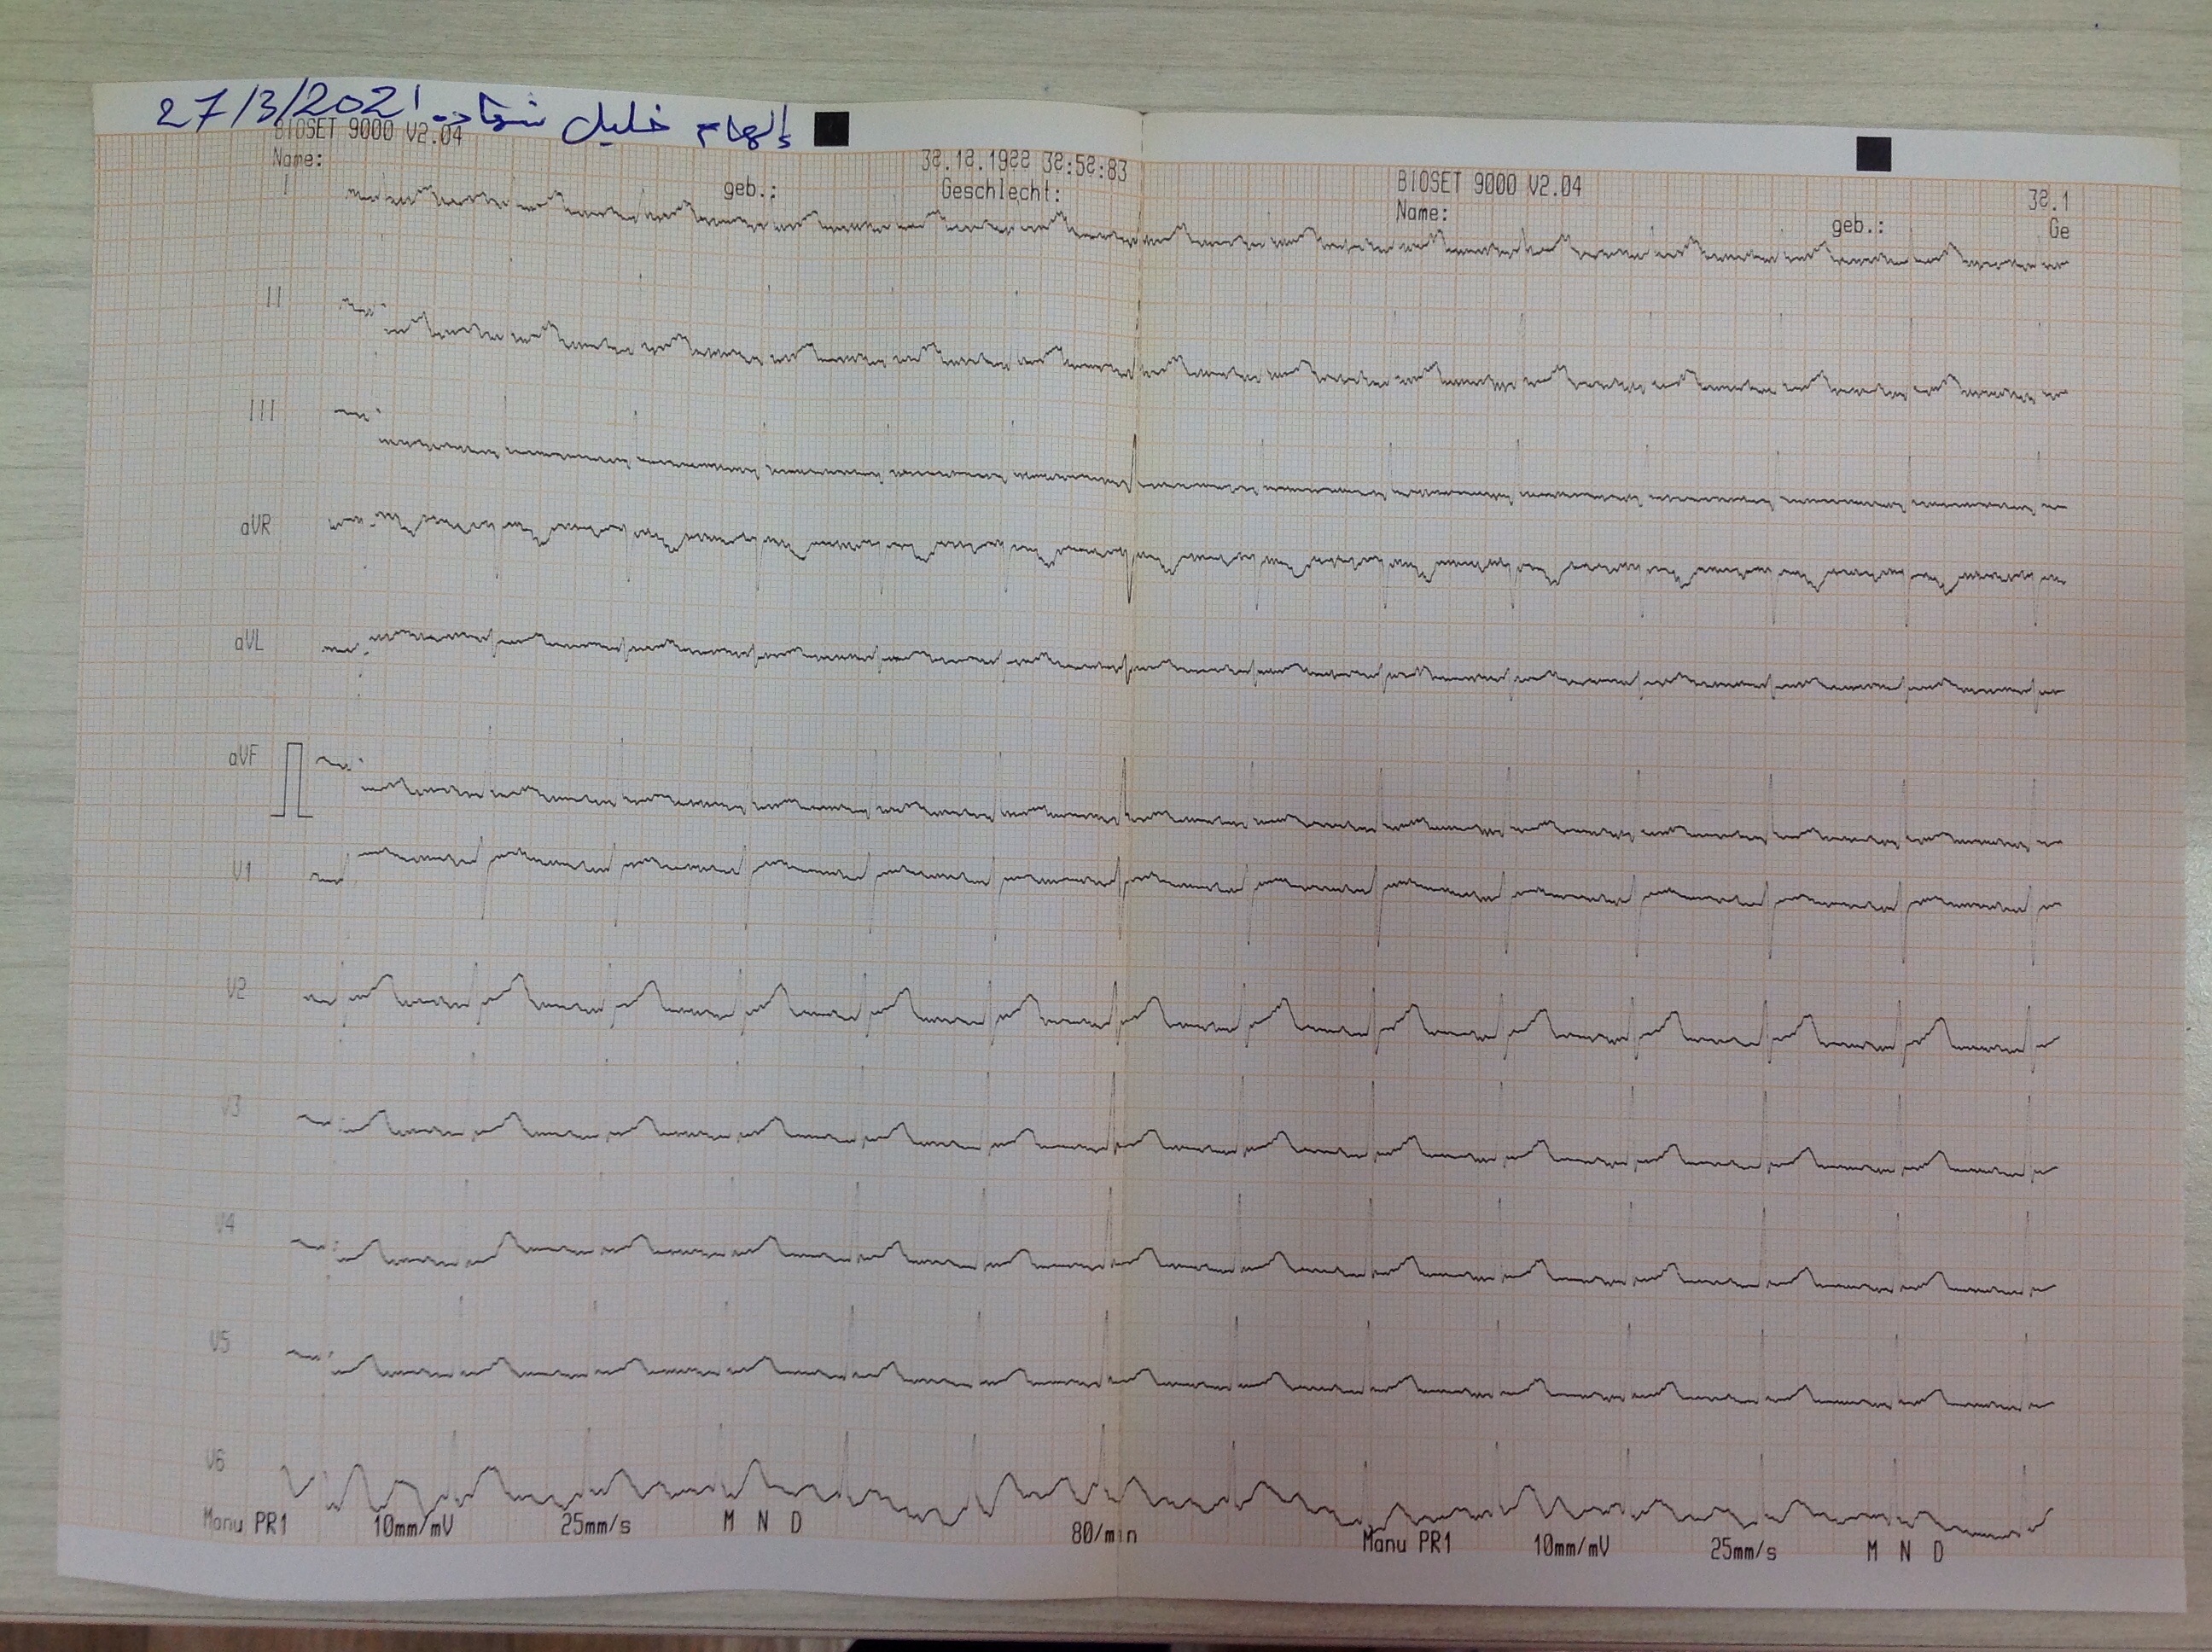 27/3/2021 إلهام خليل
BIOSET 9000 V2.04
Name:
geb.:
38.18.1988 38:58:83
Geschlecht:
BIOSET 9000 V2.04
Name:
geb.:
38.1
Ge
I
II
III
aVR
aVL
aVF
V1
V2
V3
V4
V5
V6
Manu PR1 10mm/mV 25mm/s M N D 80/min Manu PR1 10mm/mV 25mm/s M N D